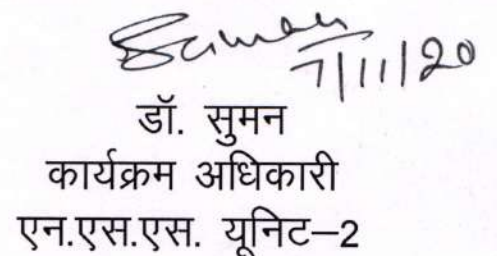 Suman
7/11/20
डॉ. सुमन
कार्यक्रम अधिकारी
एन.एस.एस. यूनिट–2